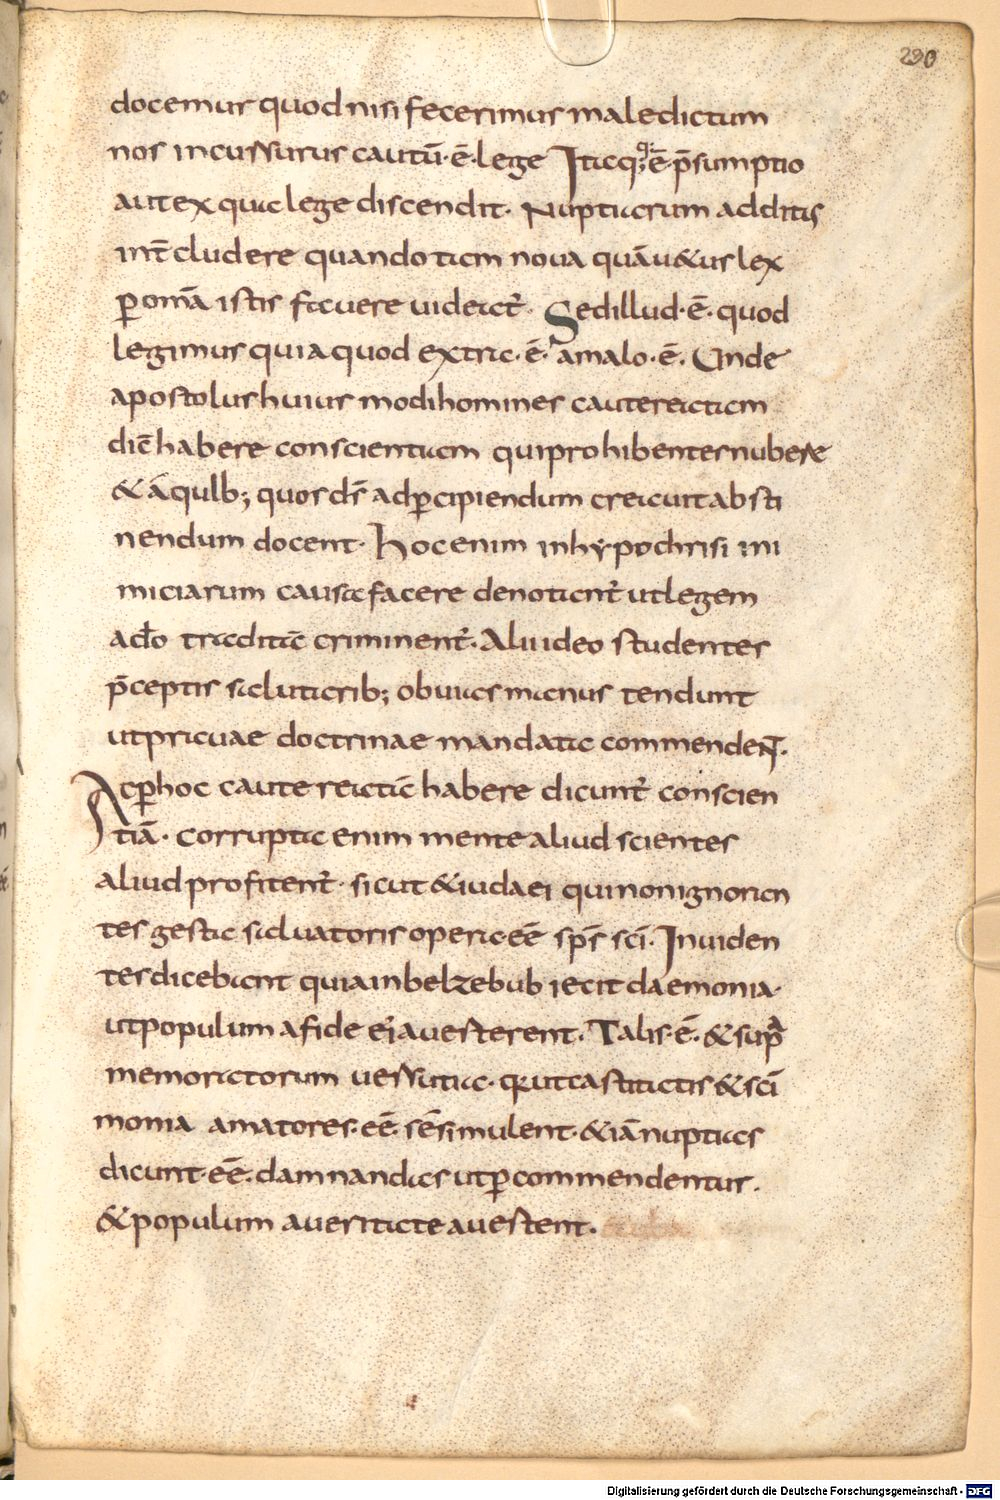 230
docemus quod nisi fecerimus maledictum
nos incussurus cautū · ē · lege Itaq; ē · p̄sumptio
aut ex qua lege discendit · Nuptiarum additis
int̄cludere quando tam noua quā u&us lex
ꝑ omā istis fauere uideat᷑ · Sed illud · ē · quod
legimus quia quod extra · ē · amalo · ē · Unde
apostolus huius modi homines cautereatam
dic̄ habere conscientiam qui prohibentes nubere
& ā qulb; quos ds̄ ad ꝑcipiendum creauit absti
nendum docent · Hoc enim in hypochrisi ini
miciarum causa facere denotant᷑ ut legem
a do traditā criminent᷑ · Aliu ideo studentes
p̄ceptis salutarib; obuias manus tendunt
ut prauae doctrinae mandata commendeNT ·
Ac ꝑ hoc cautereatā habere dicunt᷑ conscien
tiā · corrupta enim mente aliud scientes
aliud profitent᷑ · sicut & iudaei qui non ignoran
tes gesta saluatoris opera · eē sps̄ sci · Inuiden
tes dicebant quia in belzebub iecit daemonia ·
ut populum a fide ei auesterent · Talis · ē · & sup̄a
memoratorum uessutia · qui castitatis & sci
monia amatores · eē · sē simulent · & iā nuptias
dicunt · eē · damnandas ut ꝑ commendentur ·
& populum a ueritate auestent ·
Digitalisierung gefördert durch die Deutsche Forschungsgemeinschaft - DFG